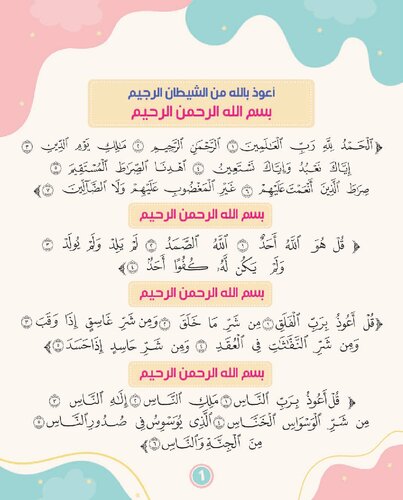 أعوذ بالله من الشيطان الرجيم
بسم الله الرحمن الرحيم
﴿ ٱلْحَمْدُ لِلَّهِ رَبِّ ٱلْعَٰلَمِينَ ١ ٱلرَّحْمَٰنِ ٱلرَّحِيمِ ٢ مَٰلِكِ يَوْمِ ٱلدِّينِ ٣
إِيَّاكَ نَعْبُدُ وَإِيَّاكَ نَسْتَعِينُ ٤ ٱهْدِنَا ٱلصِّرَٰطَ ٱلْمُسْتَقِيمَ ٥
صِرَٰطَ ٱلَّذِينَ أَنْعَمْتَ عَلَيْهِمْ ٦ غَيْرِ ٱلْمَغْضُوبِ عَلَيْهِمْ وَلَا ٱلضَّآلِّينَ ٧ ﴾
بسم الله الرحمن الرحيم
﴿ قُلْ هُوَ ٱللَّهُ أَحَدٌ ١ ٱللَّهُ ٱلصَّمَدُ ٢ لَمْ يَلِدْ وَلَمْ يُولَدْ ٣
وَلَمْ يَكُن لَّهُۥ كُفُوًا أَحَدٌ ٤ ﴾
بسم الله الرحمن الرحيم
﴿ قُلْ أَعُوذُ بِرَبِّ ٱلْفَلَقِ ١ مِن شَرِّ مَا خَلَقَ ٢ وَمِن شَرِّ غَاسِقٍ إِذَا وَقَبَ ٣
وَمِن شَرِّ ٱلنَّفَّٰثَٰتِ فِى ٱلْعُقَدِ ٤ وَمِن شَرِّ حَاسِدٍ إِذَا حَسَدَ ٥ ﴾
بسم الله الرحمن الرحيم
﴿ قُلْ أَعُوذُ بِرَبِّ ٱلنَّاسِ ١ مَلِكِ ٱلنَّاسِ ٢ إِلَٰهِ ٱلنَّاسِ ٣
مِن شَرِّ ٱلْوَسْوَاسِ ٱلْخَنَّاسِ ٤ ٱلَّذِى يُوَسْوِسُ فِى صُدُورِ ٱلنَّاسِ ٥
مِنَ ٱلْجِنَّةِ وَٱلنَّاسِ ٦ ﴾
1